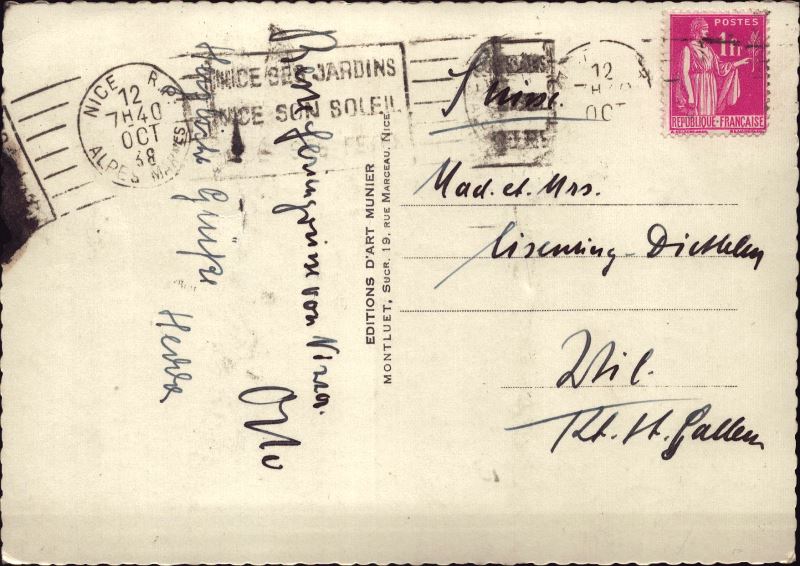 NICE R.P.
12
7H40
OCT
38
ALPES MARMES
NICE SES JARDINS
NICE SON SOLEIL
NICE SES
12
7H40
OCT
POSTES
1F
REPUBLIQUE-FRANÇAISE
von Nizza.
Otto
Herzliche Grüße
Hedda
EDITIONS D'ART MUNIER
MONTLUET, Sucr. 19, RUE MARCEAU, NICE
Suisse.
Mad. et. Mrs.
Eisenring-Diethelm
Wil.
Kt. St. Gallen